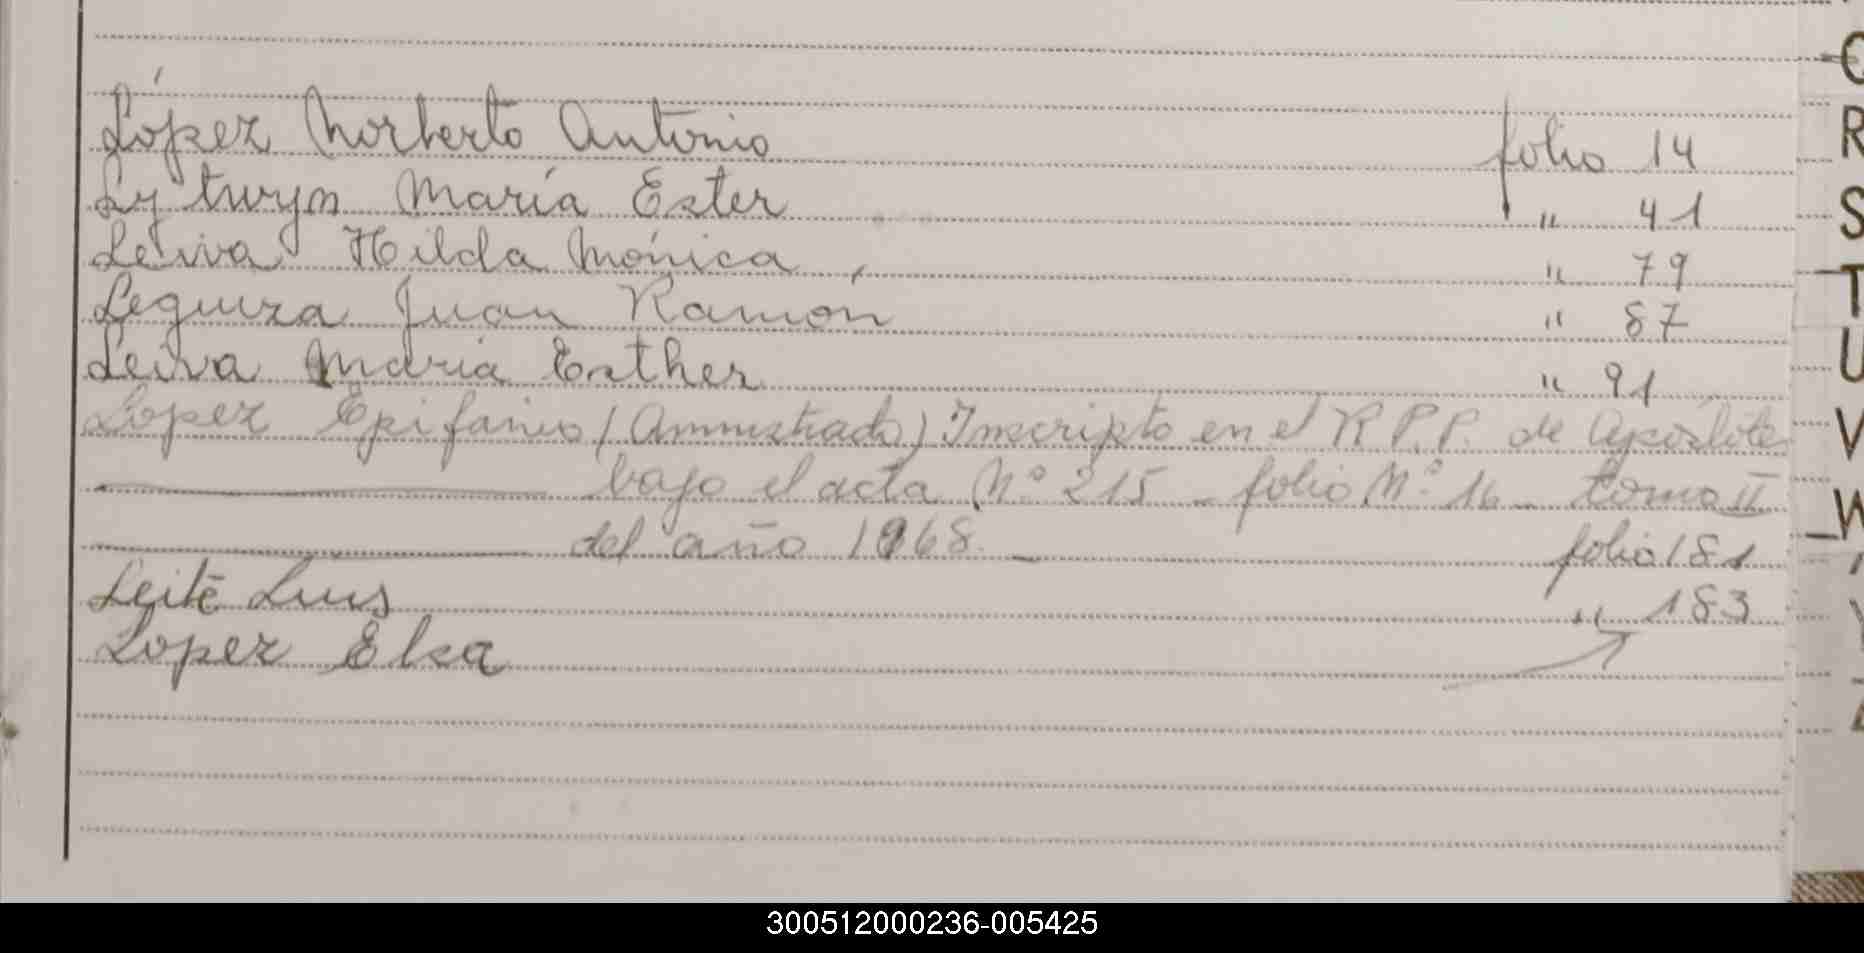 López Norberto Antonio folio 14
Lytwyn María Ester " 41
Leiva Hilda Mónica, " 79
Leguiza Juan Ramon " 87
Leiva María Esther " 91
Lopez Epifanio (Amnistiado) Inscripto en el R.P.P. de Apóstoles
bajo el acta N° 215 - folio N° 16 - tomo II
del año 1968. - folio 181
Leite Luis " 183
Lopez Elsa
Q
R
S
T
U
V
W
Y
Z
300512000236-005425